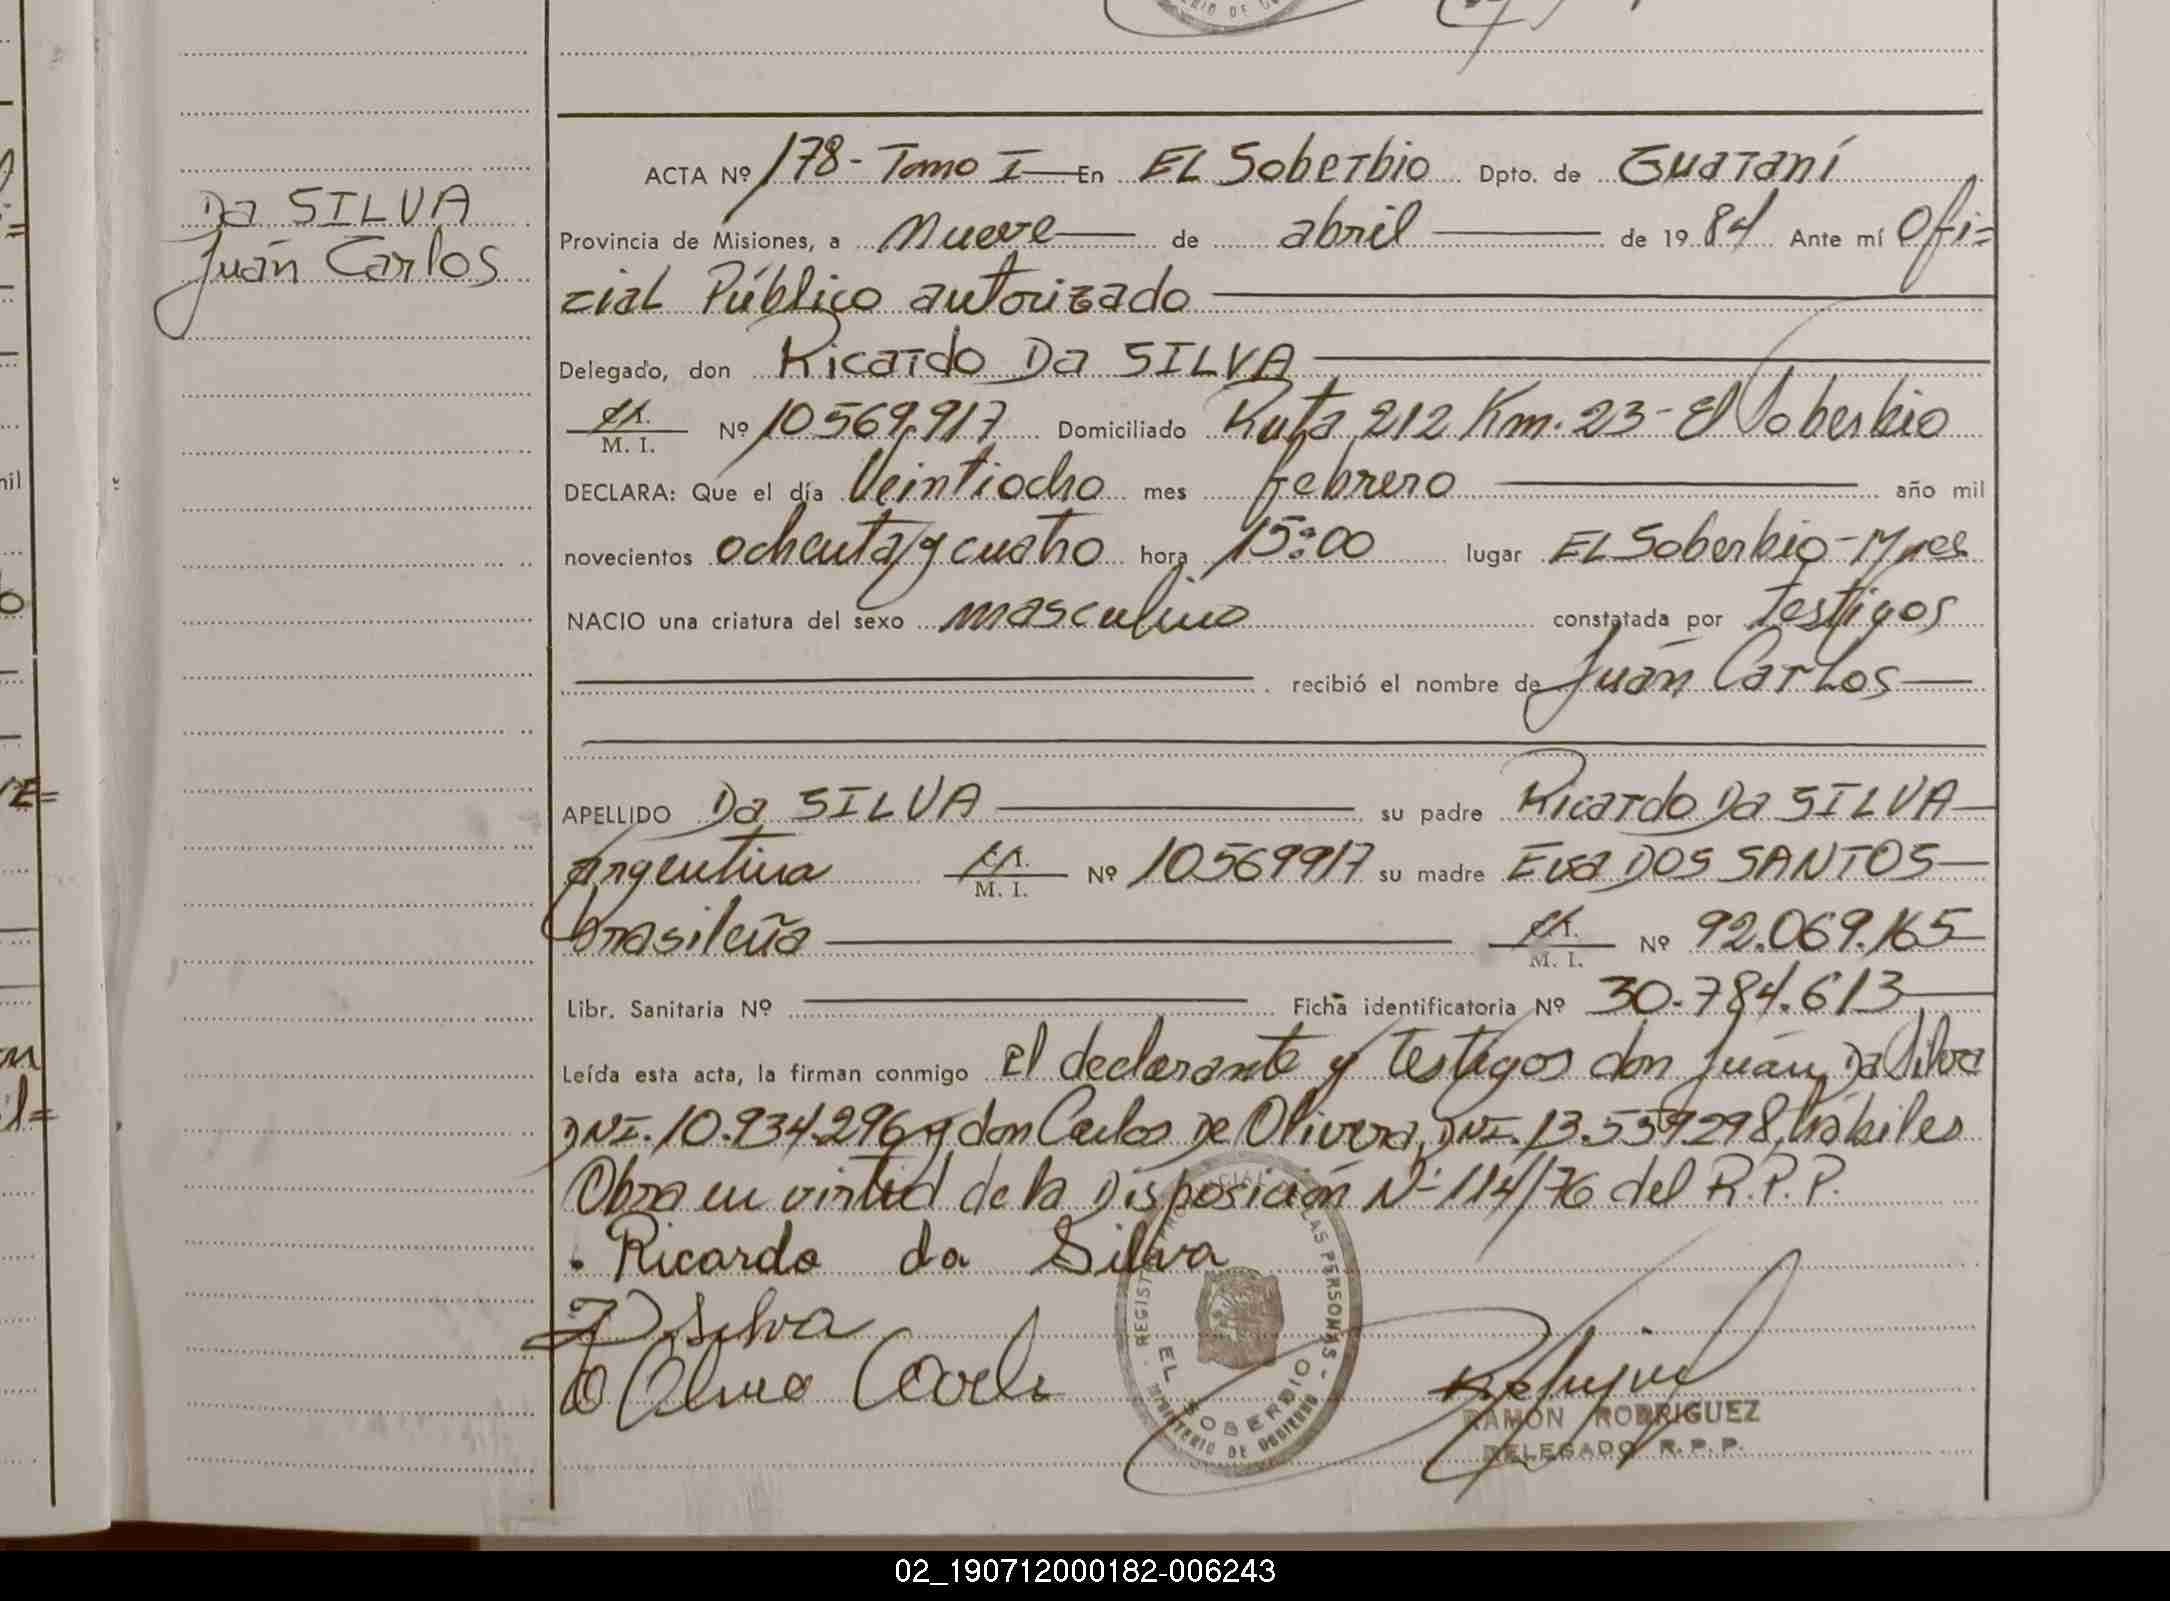 Da SILVA
Juán Carlos
ACTA Nº 178 - Tomo I En EL Soberbio Dpto. de Guaraní
Provincia de Misiones, a Nueve de abril de 1984 Ante mí Ofi=
cial Público autorizado
Delegado, don Ricardo Da SILVA
M. I. Nº 10569.917 Domiciliado Ruta 212 Km. 23 - El Soberbio
DECLARA: Que el día Veintiocho mes febrero año mil
novecientos ochenta y cuatro hora 15:00 lugar EL Soberbio - Mnes
NACIO una criatura del sexo masculino constatada por testigos
recibió el nombre de Juán Carlos
APELLIDO Da SILVA su padre Ricardo Da SILVA
argentina M. I. Nº 10569917 su madre Eva DOS SANTOS
brasileña M. I. Nº 92.069.165
Libr. Sanitaria Nº Ficha identificatoria Nº 30.784.613
Leída esta acta, la firman conmigo El declarante y testigos don Juán Da Silva
DNI. 10.934.296 y don Carlos De Olivera, DNI. 13.559.298, hábiles
Obra en virtud de la Disposición Nº 114/76 del R.P.P.
Ricardo da Silva
D. Silva
REGISTRO PROVINCIAL DE LAS PERSONAS
EL SOBERBIO
MINISTERIO DE GOBIERNO
RAMON RODRIGUEZ
DELEGADO R.P.P.
02_190712000182-006243